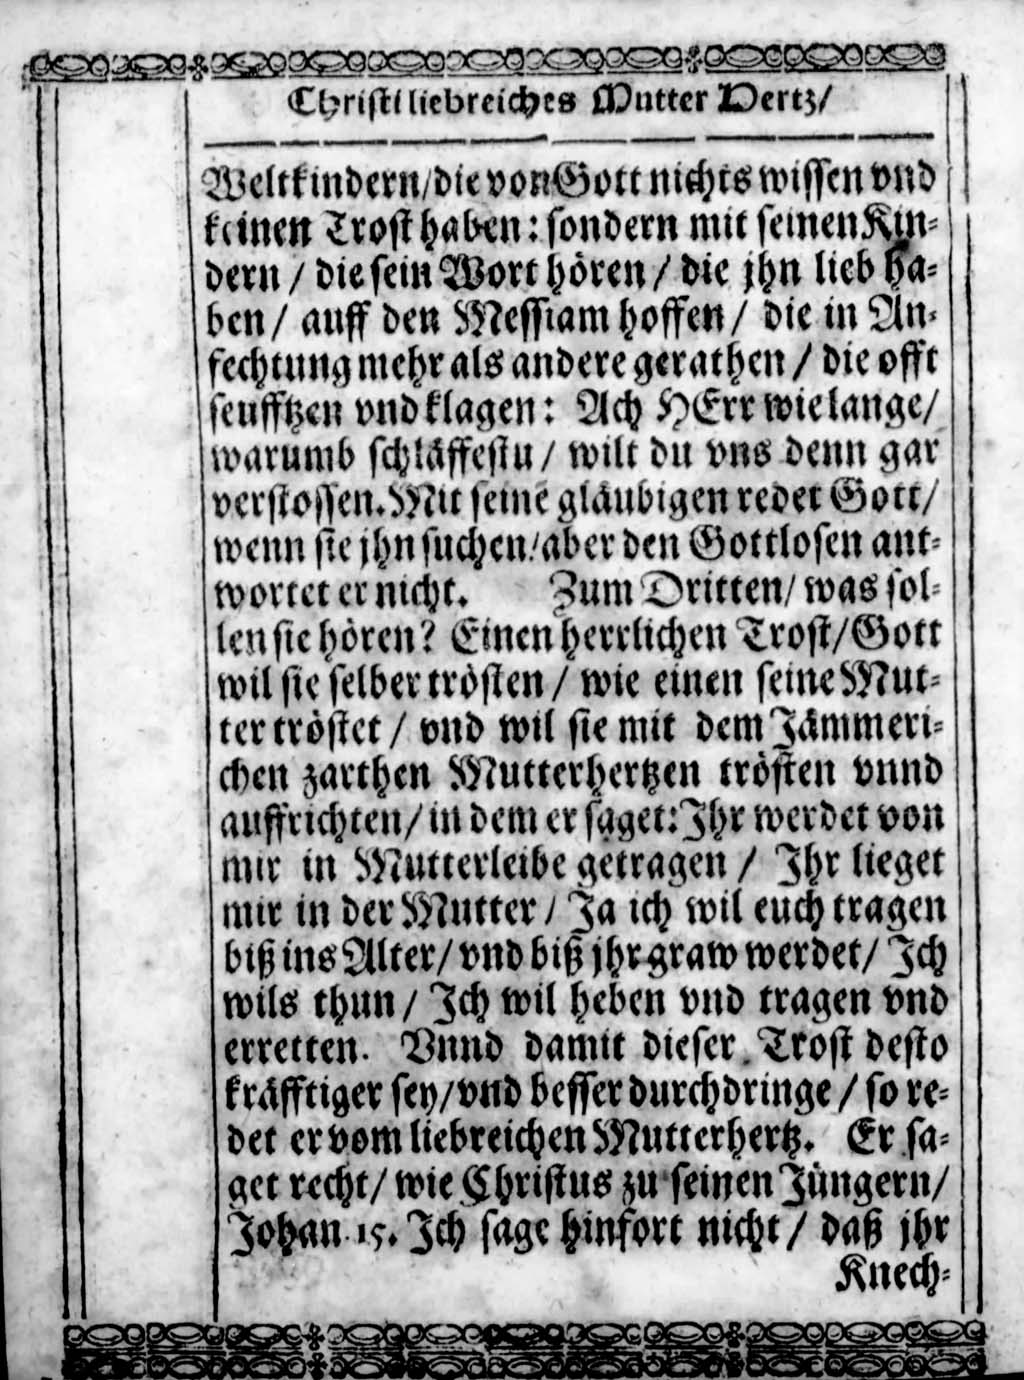 Christi liebreiches Mutter Hertz/
Weltkindern/die von Gott nichts wissen vnd
keinen Trost haben: sondern mit seinen Kin-
dern / die sein Wort hören / die jhn lieb ha-
ben / auff den Messiam hoffen / die in An-
fechtung mehr als andere gerathen / die offt
seufftzen vnd klagen: Ach HErr wie lange/
warumb schläffestu / wilt du vns denn gar
verstossen. Mit seinē gläubigen redet Gott/
wenn sie jhn suchen/aber den Gottlosen ant-
wortet er nicht. Zum Dritten/ was sol-
len sie hören? Einen herrlichen Trost/Gott
wil sie selber trösten / wie einen seine Mut-
ter tröstet / vnd wil sie mit dem Jämmeri-
chen zarthen Mutterhertzen trösten vnnd
auffrichten/ in dem er saget: Ihr werdet von
mir in Mutterleibe getragen / Ihr lieget
mir in der Mutter / Ja ich wil euch tragen
biß ins Alter/ vnd biß jhr graw werdet/ Ich
wils thun / Ich wil heben vnd tragen vnd
erretten. Vnnd damit dieser Trost desto
kräfftiger sey/vnd besser durchdringe / so re-
det er vom liebreichen Mutterhertz. Er sa-
get recht/ wie Christus zu seinen Jüngern/
Johan. 15. Ich sage hinfort nicht / daß jhr
Knech-